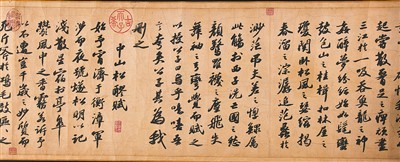 起嘗散腰足之痺頑盡
三江于一吸吞魚龍之神
姦醉夢紛紜始如髦蠻
鼓包山之桂楫扣林屋之
瓊關卧松風之瑟縮揭
春溜之淙潺追范蠡於
渺茫吊夫差之惸鰥屬
此觴於西子洗亡國之愁
顏驚羅襪之塵飛失
舞袖之弓彎覺而賦之
以授公子曰烏乎噫嘻吾
言夸矣公子其為我
刪之
中山松醪賦
始予宵濟於衡漳軍
涉而夜號燧松明以記
淺散星宿於亭皋
鬱風中之香霧若訴予
以不遭豈千歲之妙質而
死斤斧於鴻毛效區區之